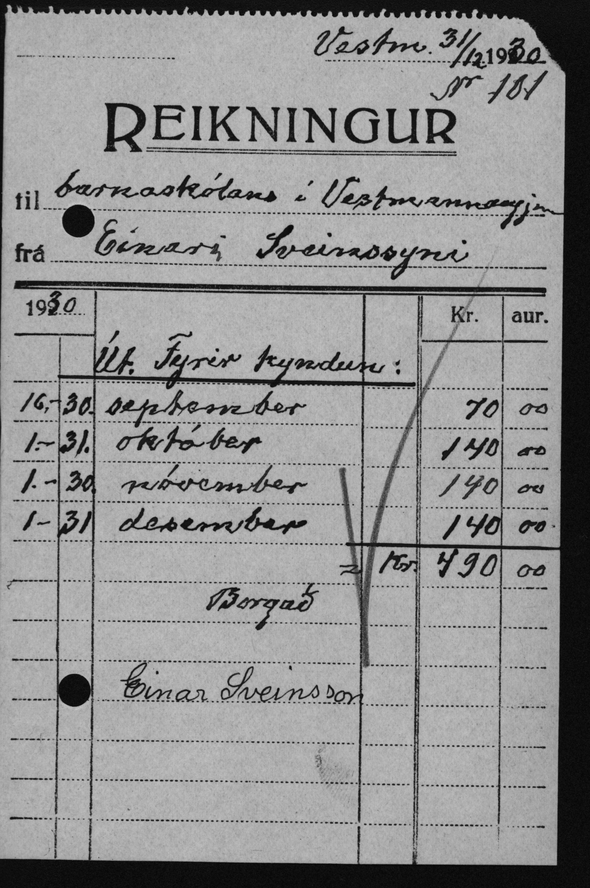 Vestm. 31/12 1930
Nr 181
REIKNINGUR
til barnaskólans í Vestmannaeyjum
frá Einari Sveinssyni
1930 Kr. aur.
Út. Fyrir kyndun:
16.-30. september 70 00
1.-31. október 140 00
1.-30. nóvember 140 00
1-31 desember 140 00
= Kr. 490 00
Borgað
Einar Sveinsson